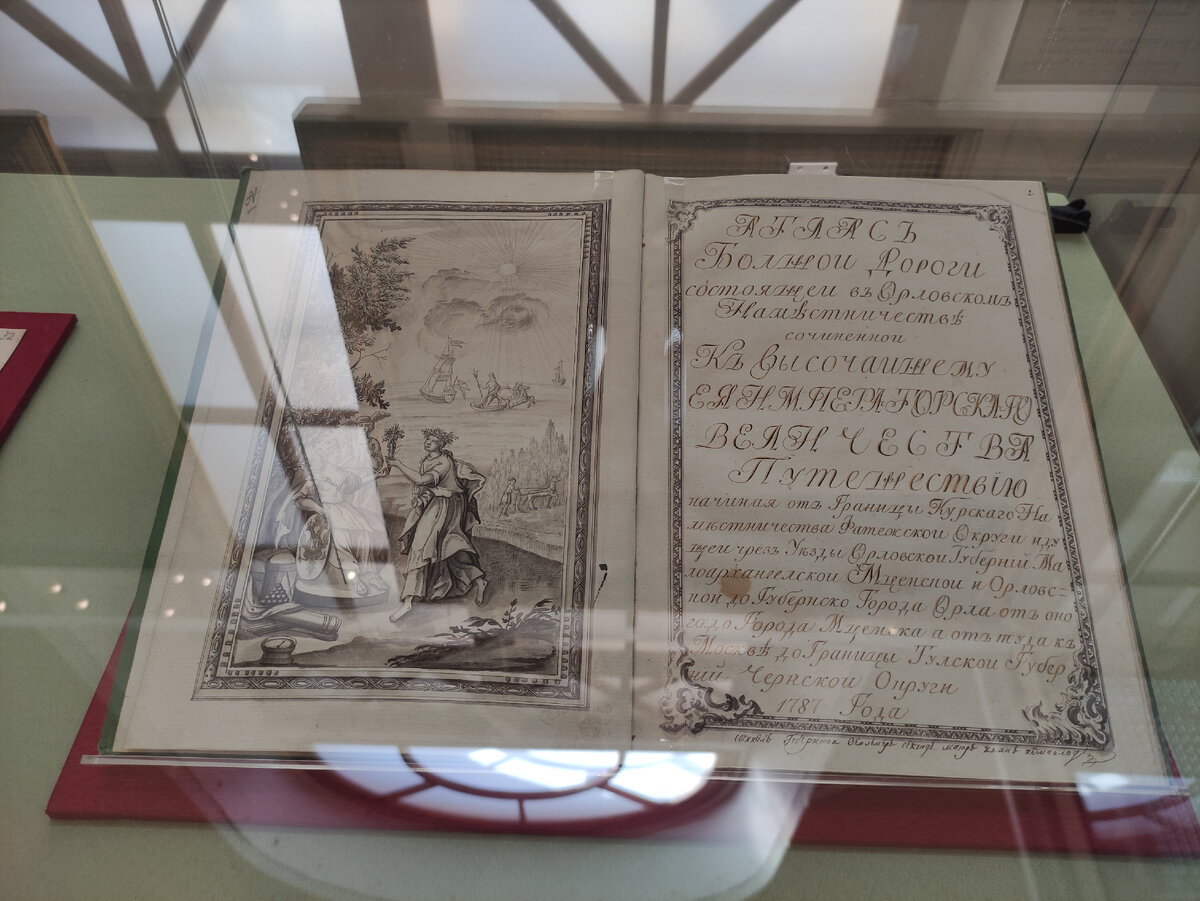 2
АТЛАСЪ
Болшои Дороги
состояшеи въ Орловскомъ
Намѣстничествѣ
сочиненнои
Къ Высочаишему
ЕЯ ИМПЕРАТОРСКАГО
ВЕЛИЧЕСТВА
Путешествію
начиная отъ Границы Курскаго На
мѣстничества Фатежскои Округи иду
щеи чрезъ Уѣзды Орловскои Губерніи Ма
лоархангелскои Мценскои и Орловс-
кои до Губернско Города Орла отъ оно
го до Города Мценска а отътуда къ
Москвѣ до Границы Тулскои Губер
ніи Чернскои Округи
1787 Года
32